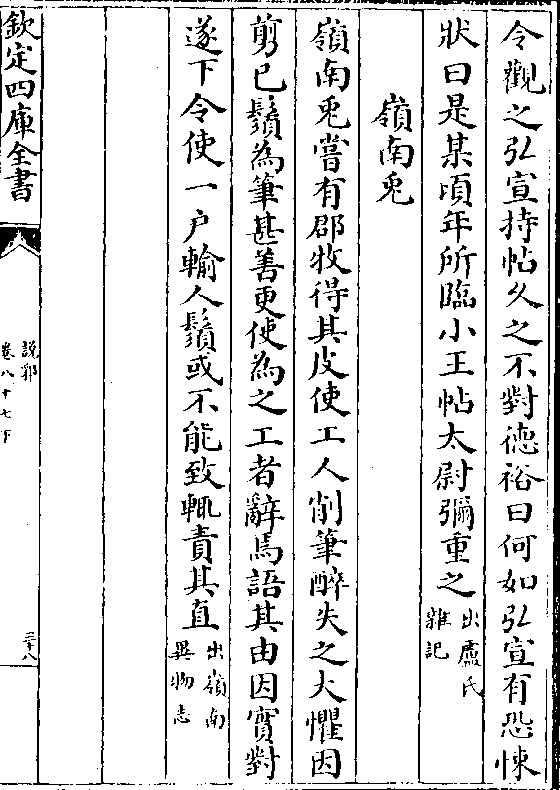 令觀之弘宣持帖久之不對德裕曰何如弘宣有恐悚
狀曰是某頃年所臨小王帖太尉彌重之出盧氏雜記
嶺南兎
嶺南兎嘗有郡牧得其皮使工人削筆醉失之大懼因
剪已鬚為筆甚善更使為之工者辭焉語其由因實對
遂下令使一户輸人鬚或不能致輒責其直出嶺南異物志
欽定四庫全書
說郛
卷八十七下
三十八